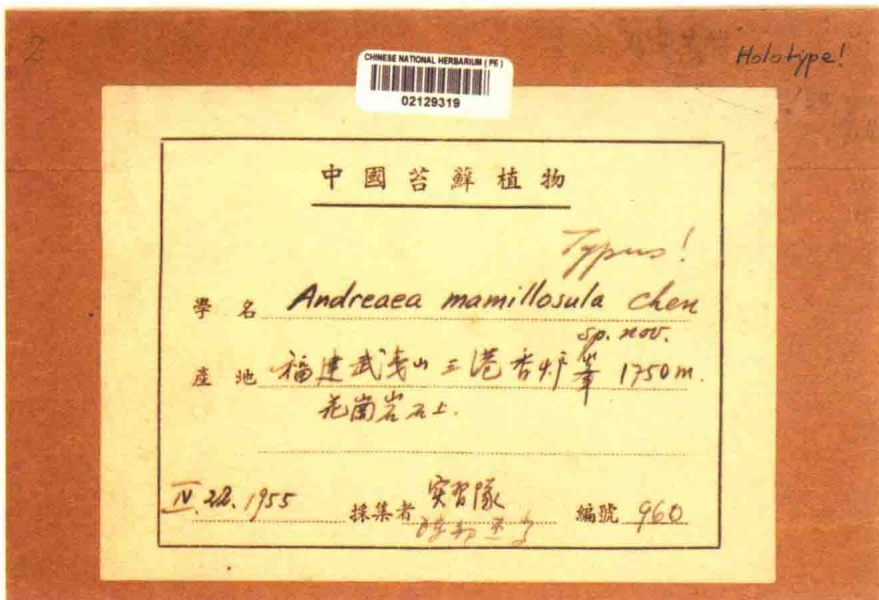 Holotype!
CHINESE NATIONAL HERBARIUM ( PE )
02129319
中國苔蘚植物
Typus!
學名 Andreaea mamillosula Chen
sp. nov.
產地 福建武夷山三港香炉峯 1750 m.
花崗岩石上.
IV. 22. 1955 採集者 实習隊 編號 960